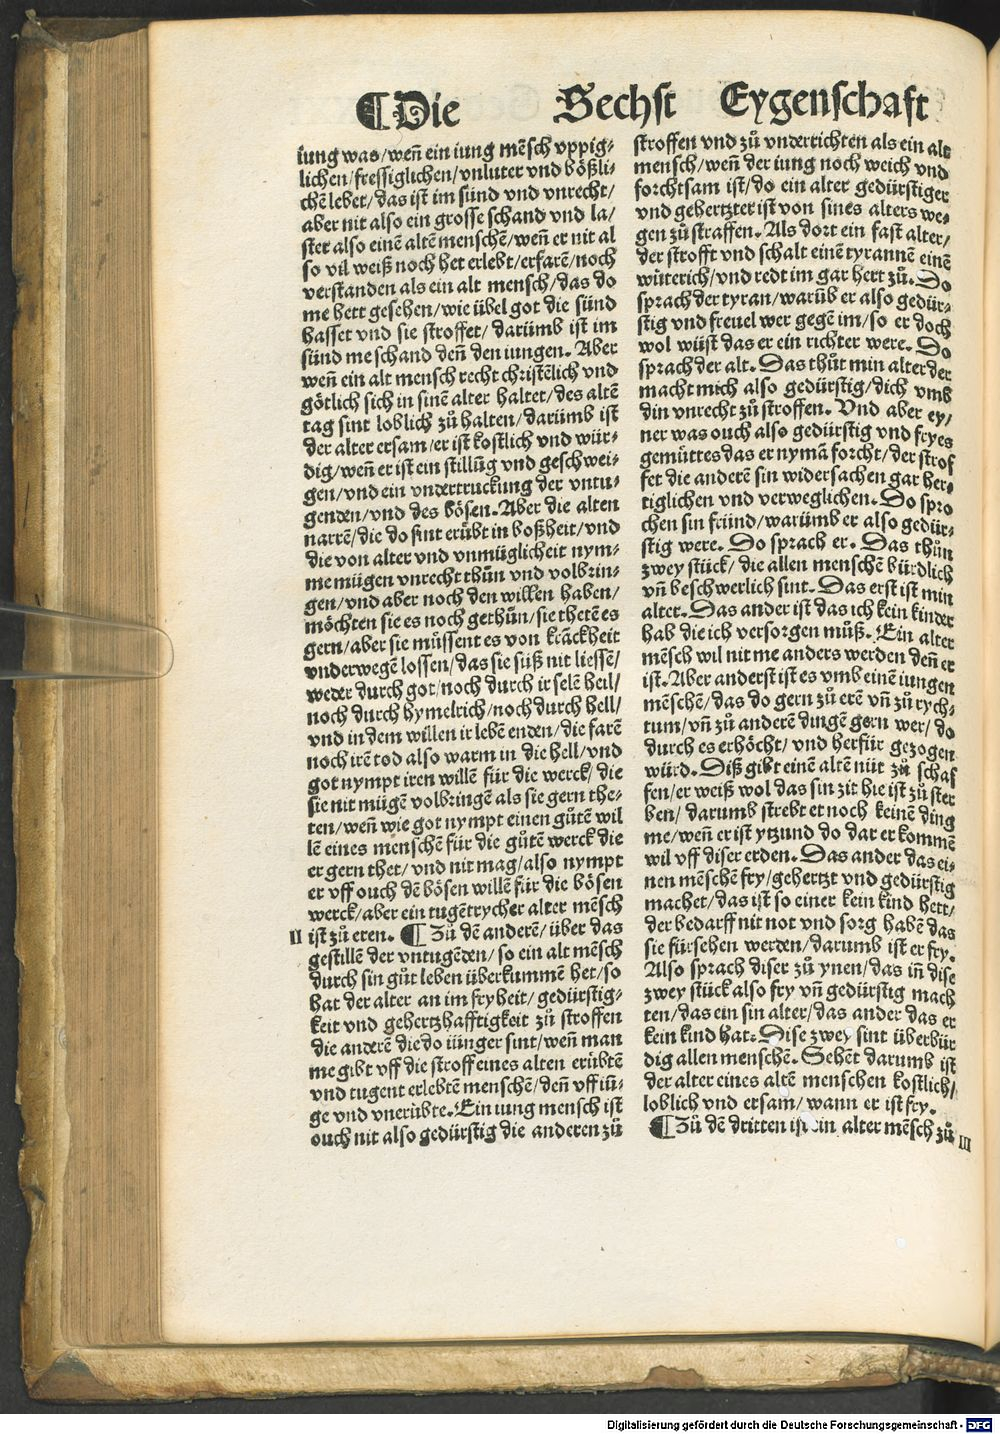 ¶Die Sechst Eygenschaft
iung was/weñ ein iung mẽsch vppig⸗
lichen/fressiglichen/vnluter vnd bößli⸗
chẽ lebet/das ist im sünd vnd vnrecht/
aber nit also ein grosse schand vnd la/
ster also einẽ altẽ menschẽ/weñ er nit al
so vil weiß noch het erlebt/erfarẽ/noch
verstanden als ein alt mensch/das do
me hett gesehen/wie übel got die sünd
hasset vnd sie stroffet/darümb ist im
sünd me schand deñ den iungen. Aber
weñ ein alt mensch recht christẽlich vnd
götlich sich in sinẽ alter haltet/des altẽ
tag sint loblich zů halten/darümb ist
der alter ersam/er ist kostlich vnd wür⸗
dig/weñ er ist ein stillũg vnd geschwei⸗
gen/vnd ein vndertruckung der vntu⸗
genden/vnd des bösen. Aber die alten
narrẽ/die do sint erübt in boßheit/vnd
die von alter vnd vnmüglicheit nym⸗
me mügen vnrecht thůn vnd volbrin⸗
gen/vnd aber noch den willen haben/
möchten sie es noch gethůn/sie thetẽ es
gern/aber sie müssent es von krãckheit
vnderwegẽ lossen/das sie süß nit liessẽ/
weder durch got/noch durch ir selẽ heil/
noch durch hymelrich/noch durch hell/
vnd in dem willen ir lebẽ enden/die farẽ
noch irẽ tod also warm in die hell/vnd
got nympt iren willẽ für die werck/die
sie nit mügẽ volbringẽ als sie gern the⸗
ten/weñ wie got nympt einen gůtẽ wil
lẽ eines menschẽ für die gůtẽ werck die
er gern thet/vnd nit mag/also nympt
er vff ouch dẽ bösen willẽ für die bösen
werck/aber ein tugẽtrycher alter mẽsch
II ist zů eren. ¶Zů dẽ anderẽ/über das
gestillẽ der vntugẽden/so ein alt mẽsch
durch sin gůt leben überkummẽ het/so
hat der alter an im fryheit/gedürstig⸗
keit vnd gehertzhafftigkeit zů stroffen
die anderẽ die do iünger sint/weñ man
me gibt vff die stroff eines alten erübtẽ
vnd tugent erlebtẽ menschẽ/deñ vff iũ⸗
ge vnd vnerübte. Ein iung mensch ist
ouch nit also gedürstig die anderen zů
stroffen vnd zů vnderrichten als ein alt
mensch/weñ der iung noch weich vnd
forchtsam ist/do ein alter gedürstiger
vnd gehertzter ist von sines alters we⸗
gen zů straffen. Als dort ein fast alter/
der strofft vnd schalt einẽ tyrannẽ einẽ
wüterich/vnd redt im gar hert zů. Do
sprach der tyran/warũb er also gedür⸗
stig vnd freuel wer gegẽ im/so er doch
wol wüst das er ein richter were. Do
sprach der alt. Das thůt min alter der
macht mich also gedürstig/dich vmb
din vnrecht zů stroffen. Vnd aber ey/
ner was ouch also gedürstig vnd fryes
gemüttes das er nymã forcht/der strof
fet die anderẽ sin widersachen gar her⸗
tiglichen vnd verweglichen. Do spro
chen sin fründ/warümb er also gedür⸗
stig were. Do sprach er. Das thůn
zwey stück/die allen menschẽ bürdlich
vñ beschwerlich sint. Das erst ist min
alter. Das ander ist das ich kein kinder
hab die ich versorgen můß. Ein alter
mẽsch wil nit me anders werden deñ er
ist. Aber anderst ist es vmb einẽ iungen
mẽschẽ/das do gern zů erẽ vñ zů rych⸗
tum/vñ zů anderẽ dingẽ gern wer/do
durch es erhöcht/vnd herfür gezogen
würd. Diß gibt einẽ altẽ nüt zů schaf
fen/er weiß wol das sin zit hie ist zů ster
ben/darumb strebt er noch keinẽ ding
me/weñ er ist ytzund do dar er kommẽ
wil vff diser erden. Das ander das ei⸗
nen mẽschẽ fry/gehertzt vnd gedürstig
machet/das ist so einer kein kind hett/
der bedarff nit not vnd sorg habẽ das
sie fürsehen werden/darumb ist er fry.
Also sprach diser zů ynen/das iñ dise
zwey stück also fry vñ gedürstig mach
ten/das ein sin alter/das ander das er
kein kind hat. Dise zwey sint überbür
dig allen menschẽ. Sehẽt darumb ist
der alter eines altẽ menschen kostlich/
loblich vnd ersam/wann er ist fry.
¶Zů dẽ dritten ist ein alter mẽsch zů III
Digitalisierung gefördert durch die Deutsche Forschungsgemeinschaft - DFG